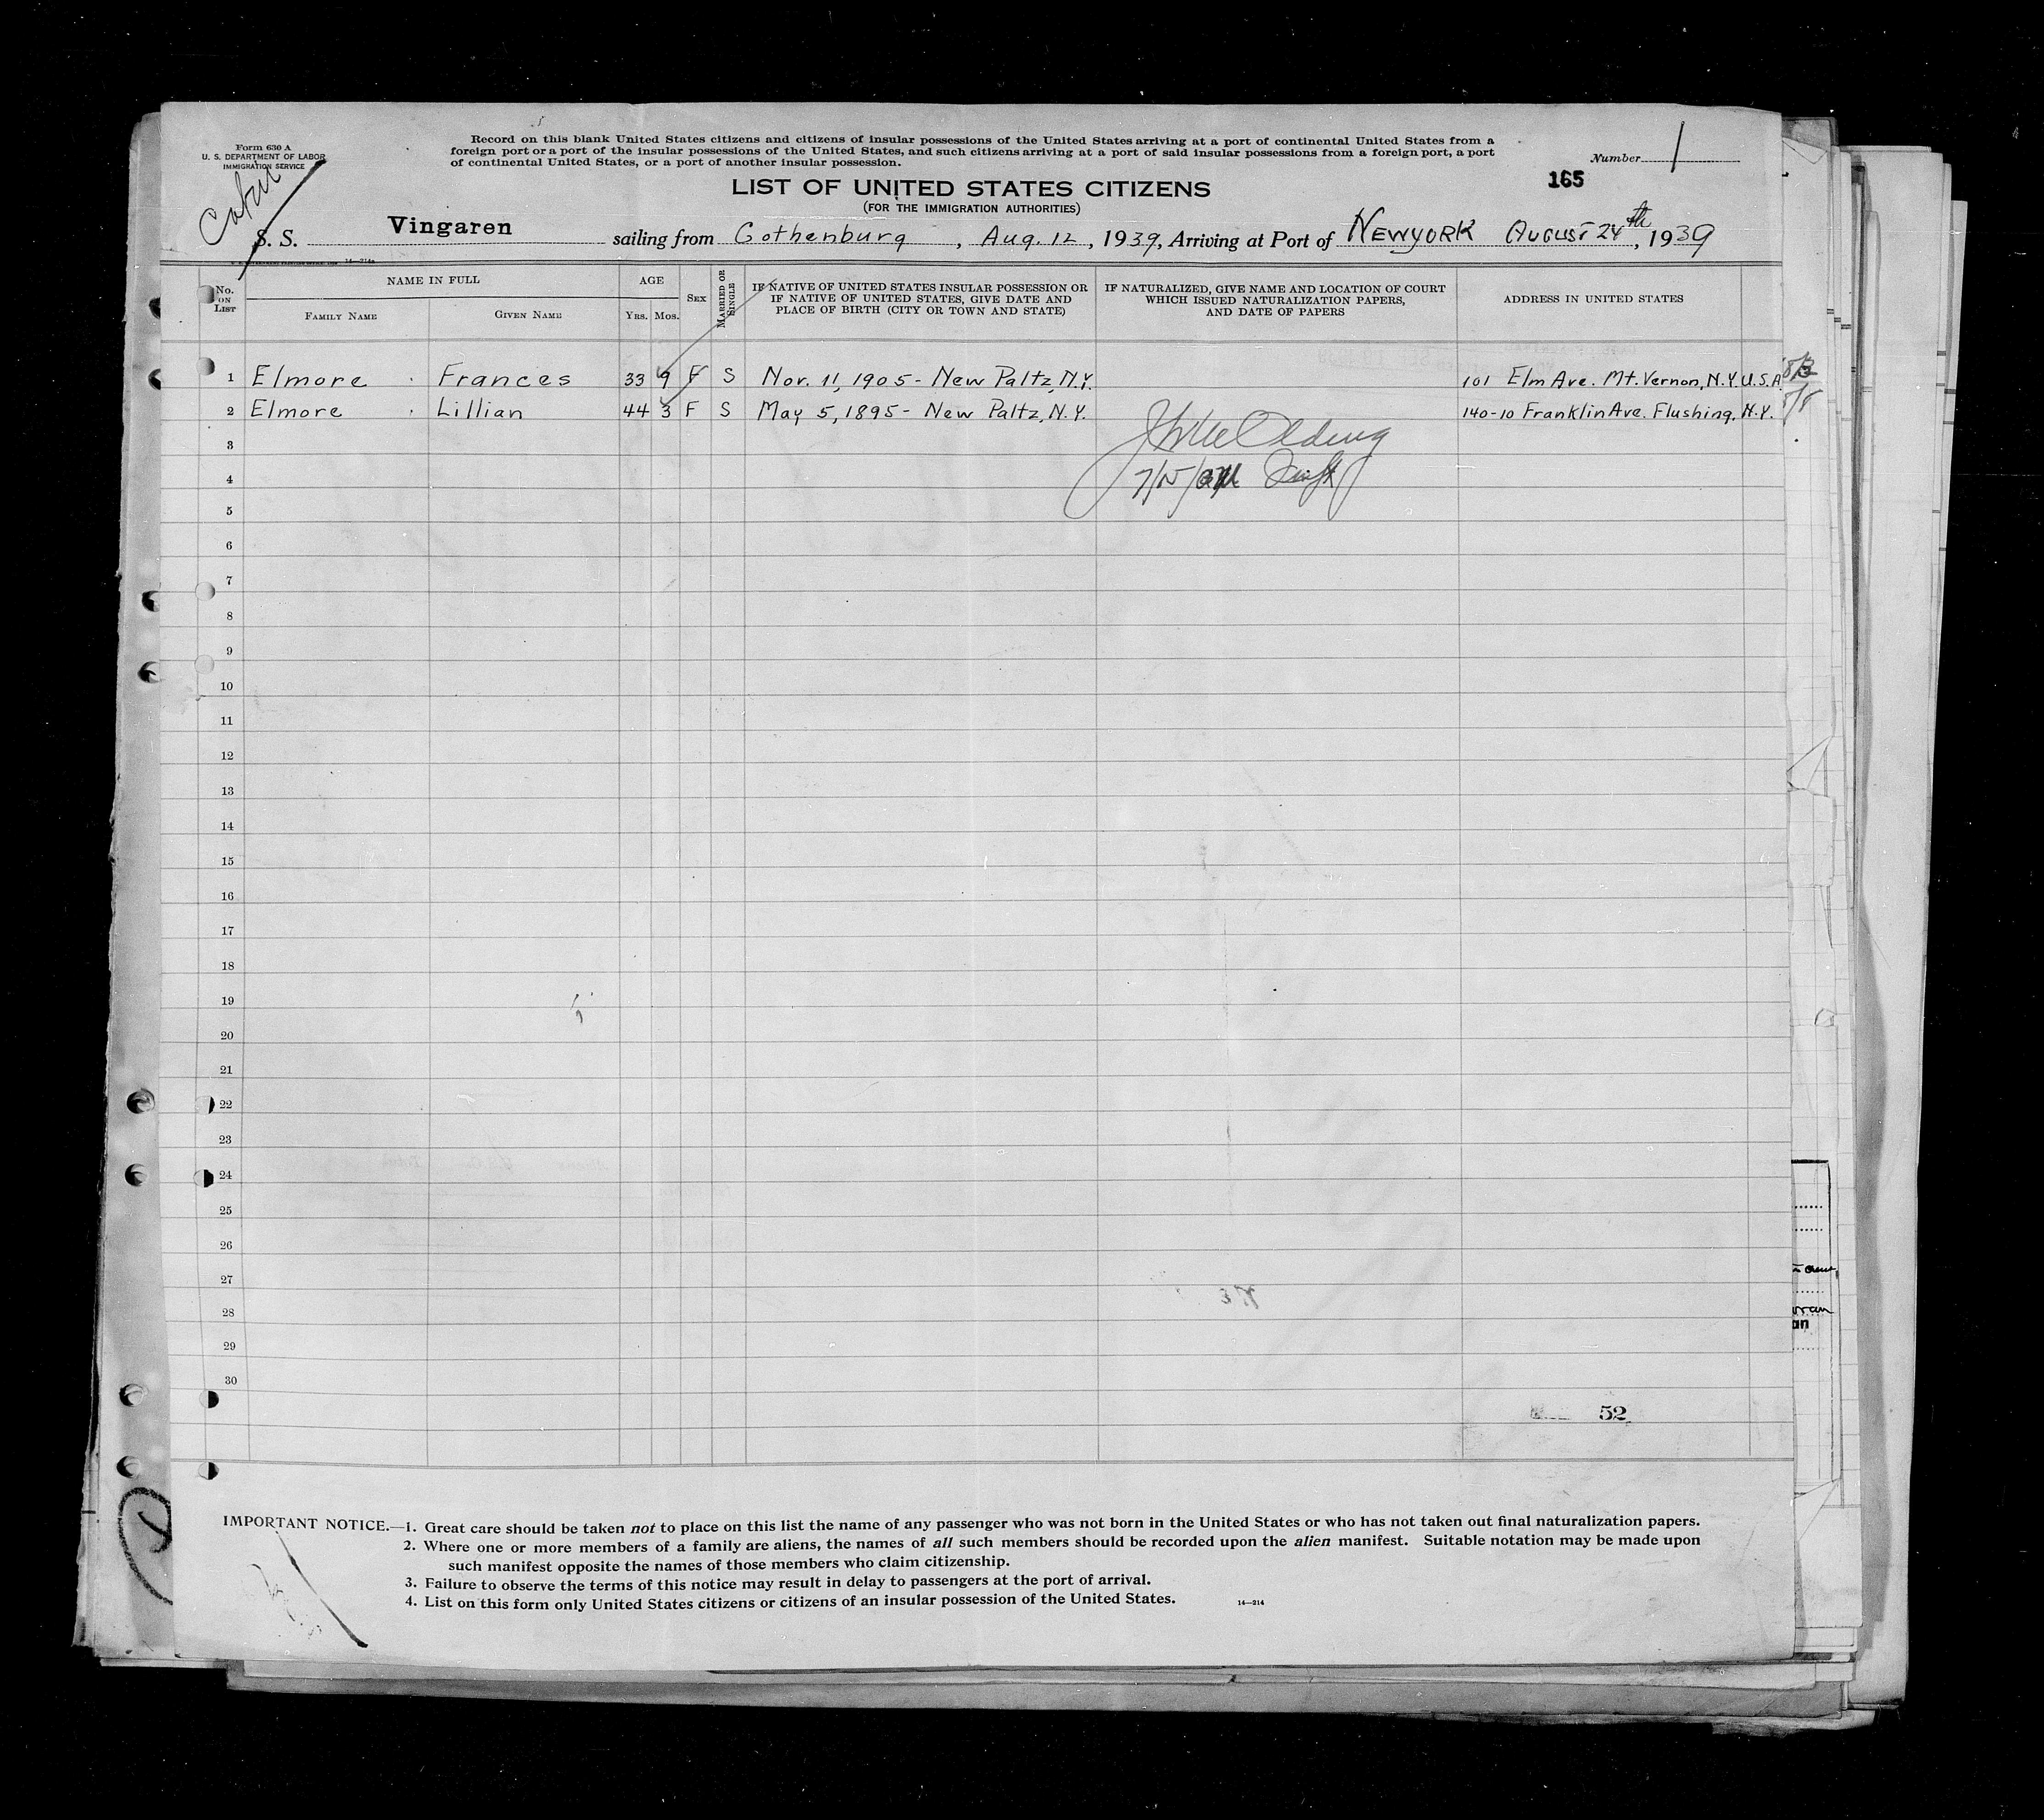 Form 630 A
U. S. DEPARTMENT OF LABOR
IMMIGRATION SERVICE
Cabin
Record on this blank United States citizens and citizens of insular possessions of the United States arriving at a port of continental United States from a
foreign port or a port of the insular possessions of the United States, and such citizens arriving at a port of said insular possessions from a foreign port, a port
of continental United States, or a port of another insular possession.
Number 1
165
LIST OF UNITED STATES CITIZENS
(FOR THE IMMIGRATION AUTHORITIES)
S. S. Vingaren sailing from Gothenburg, Aug. 12, 1939, Arriving at Port of NEWYORK AUGUST 24th, 1939
14—214a
No. ON LIST
NAME IN FULL
FAMILY NAME
GIVEN NAME
AGE
YRS. MOS.
SEX
MARRIED OR SINGLE
IF NATIVE OF UNITED STATES INSULAR POSSESSION OR
IF NATIVE OF UNITED STATES, GIVE DATE AND
PLACE OF BIRTH (CITY OR TOWN AND STATE)
IF NATURALIZED, GIVE NAME AND LOCATION OF COURT
WHICH ISSUED NATURALIZATION PAPERS,
AND DATE OF PAPERS
ADDRESS IN UNITED STATES
1 Elmore Frances 33 9 F S Nov. 11, 1905 - New Paltz, N.Y. 101 Elm Ave. Mt. Vernon, N.Y. U.S.A.
2 Elmore Lillian 44 3 F S May 5, 1895 - New Paltz, N.Y. 140-10 Franklin Ave. Flushing, N.Y.
3
4
5
6
7
8
9
10
11
12
13
14
15
16
17
18
19
20
21
22
23
24
25
26
27
28
29
30
52
IMPORTANT NOTICE.—1. Great care should be taken not to place on this list the name of any passenger who was not born in the United States or who has not taken out final naturalization papers.
2. Where one or more members of a family are aliens, the names of all such members should be recorded upon the alien manifest. Suitable notation may be made upon
such manifest opposite the names of those members who claim citizenship.
3. Failure to observe the terms of this notice may result in delay to passengers at the port of arrival.
4. List on this form only United States citizens or citizens of an insular possession of the United States.
14—214